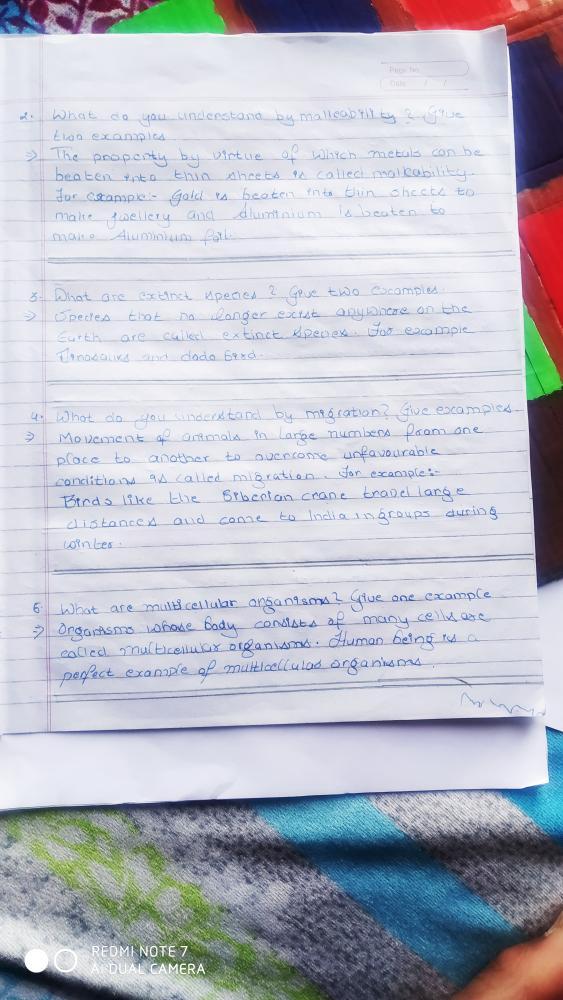 Page No.
Date / /
2. What do you understand by malleability? Give
two examples
⇒ The property by virtue of which metals can be
beaten into thin sheets is called malleability.
For example:- Gold is beaten into thin sheets to
make jwellery and Aluminium is beaten to
make Aluminium foil.
3. What are extinct species? Give two examples.
⇒ Species that no longer exist anywhere on the
Earth are called extinct species. For example
Dinosaurs and dodo Bird.
4. What do you understand by migration? Give examples
⇒ Movement of animals in large numbers from one
place to another to overcome unfavourable
conditions is called migration. For example:-
Birds like the Siberian crane travel large
distances and come to India in groups during
winter.
5. What are multicellular organisms? Give one example
⇒ Organisms whose body consists of many cells are
called multicellular organisms. Human being is a
perfect example of multicellular organisms.
REDMI NOTE 7
AI DUAL CAMERA